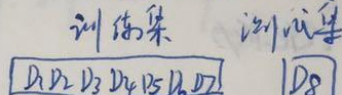 训练集 测试集
D1 D2 D3 D4 D5 D6 D7 D8